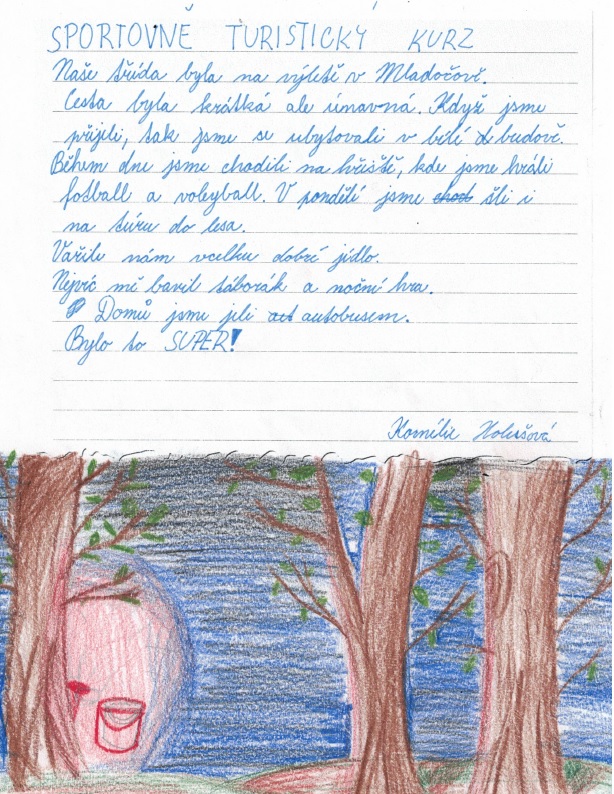 SPORTOVNĚ TURISTICKÝ KURZ
Naše třída byla na výletě v Mladočově.
Cesta byla krátká ale únavná. Když jsme
přijeli, tak jsme se ubytovali v bílé budově.
Během dne jsme chodili na hřiště, kde jsme hráli
fotball a voleyball. V pondělí jsme šli i
na túru do lesa.
Vařili nám vcelku dobré jídlo.
Nejvíc mě bavil táborák a noční hra.
Domů jsme jeli autobusem.
Bylo to SUPER!
Kornélie Holušová